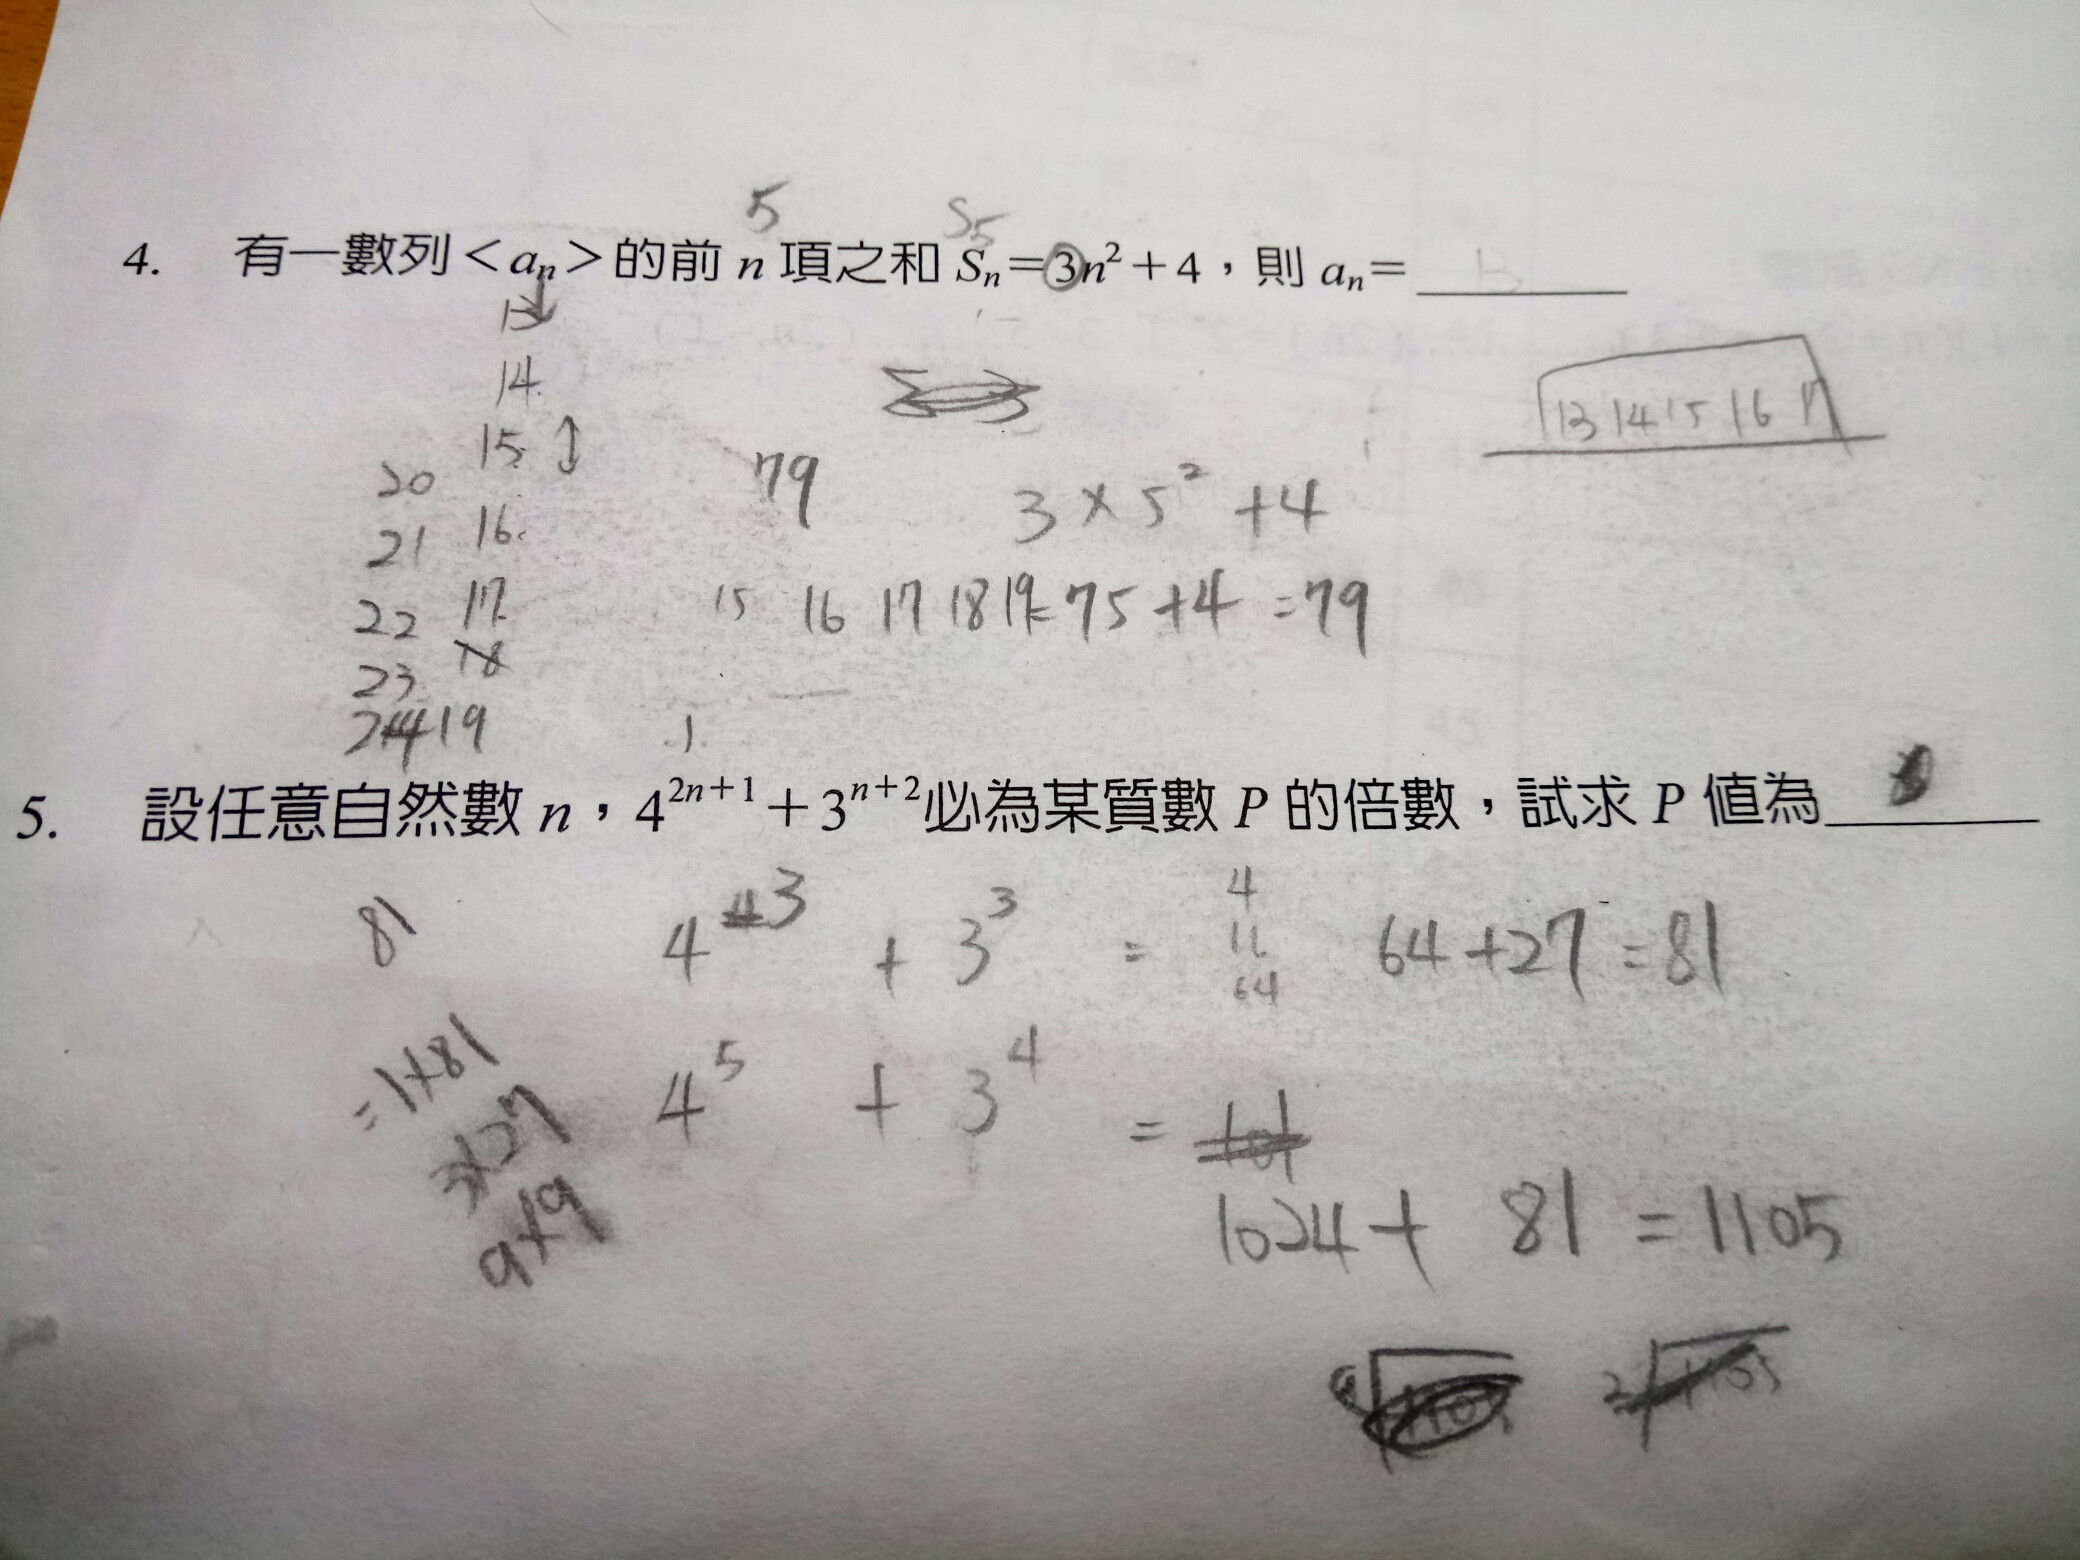 5 S₅
4. 有一數列<aₙ>的前 n 項之和 Sₙ=3n²+4，則 aₙ= 13
13
14
15
20
16
21
17
22
18
23
24 19
79
3×5²+4
15 16 17 18 19 = 75+4=79
13 14 15 16 17
1
5. 設任意自然數 n，4²ⁿ⁺¹+3ⁿ⁺²必為某質數 P 的倍數，試求 P 值為
81
4³ + 3³ = 64+27=81
4
64
=1×81
3×27
9×9
4⁵ + 3⁴ = 101
1024+ 81 = 1105
2 1105